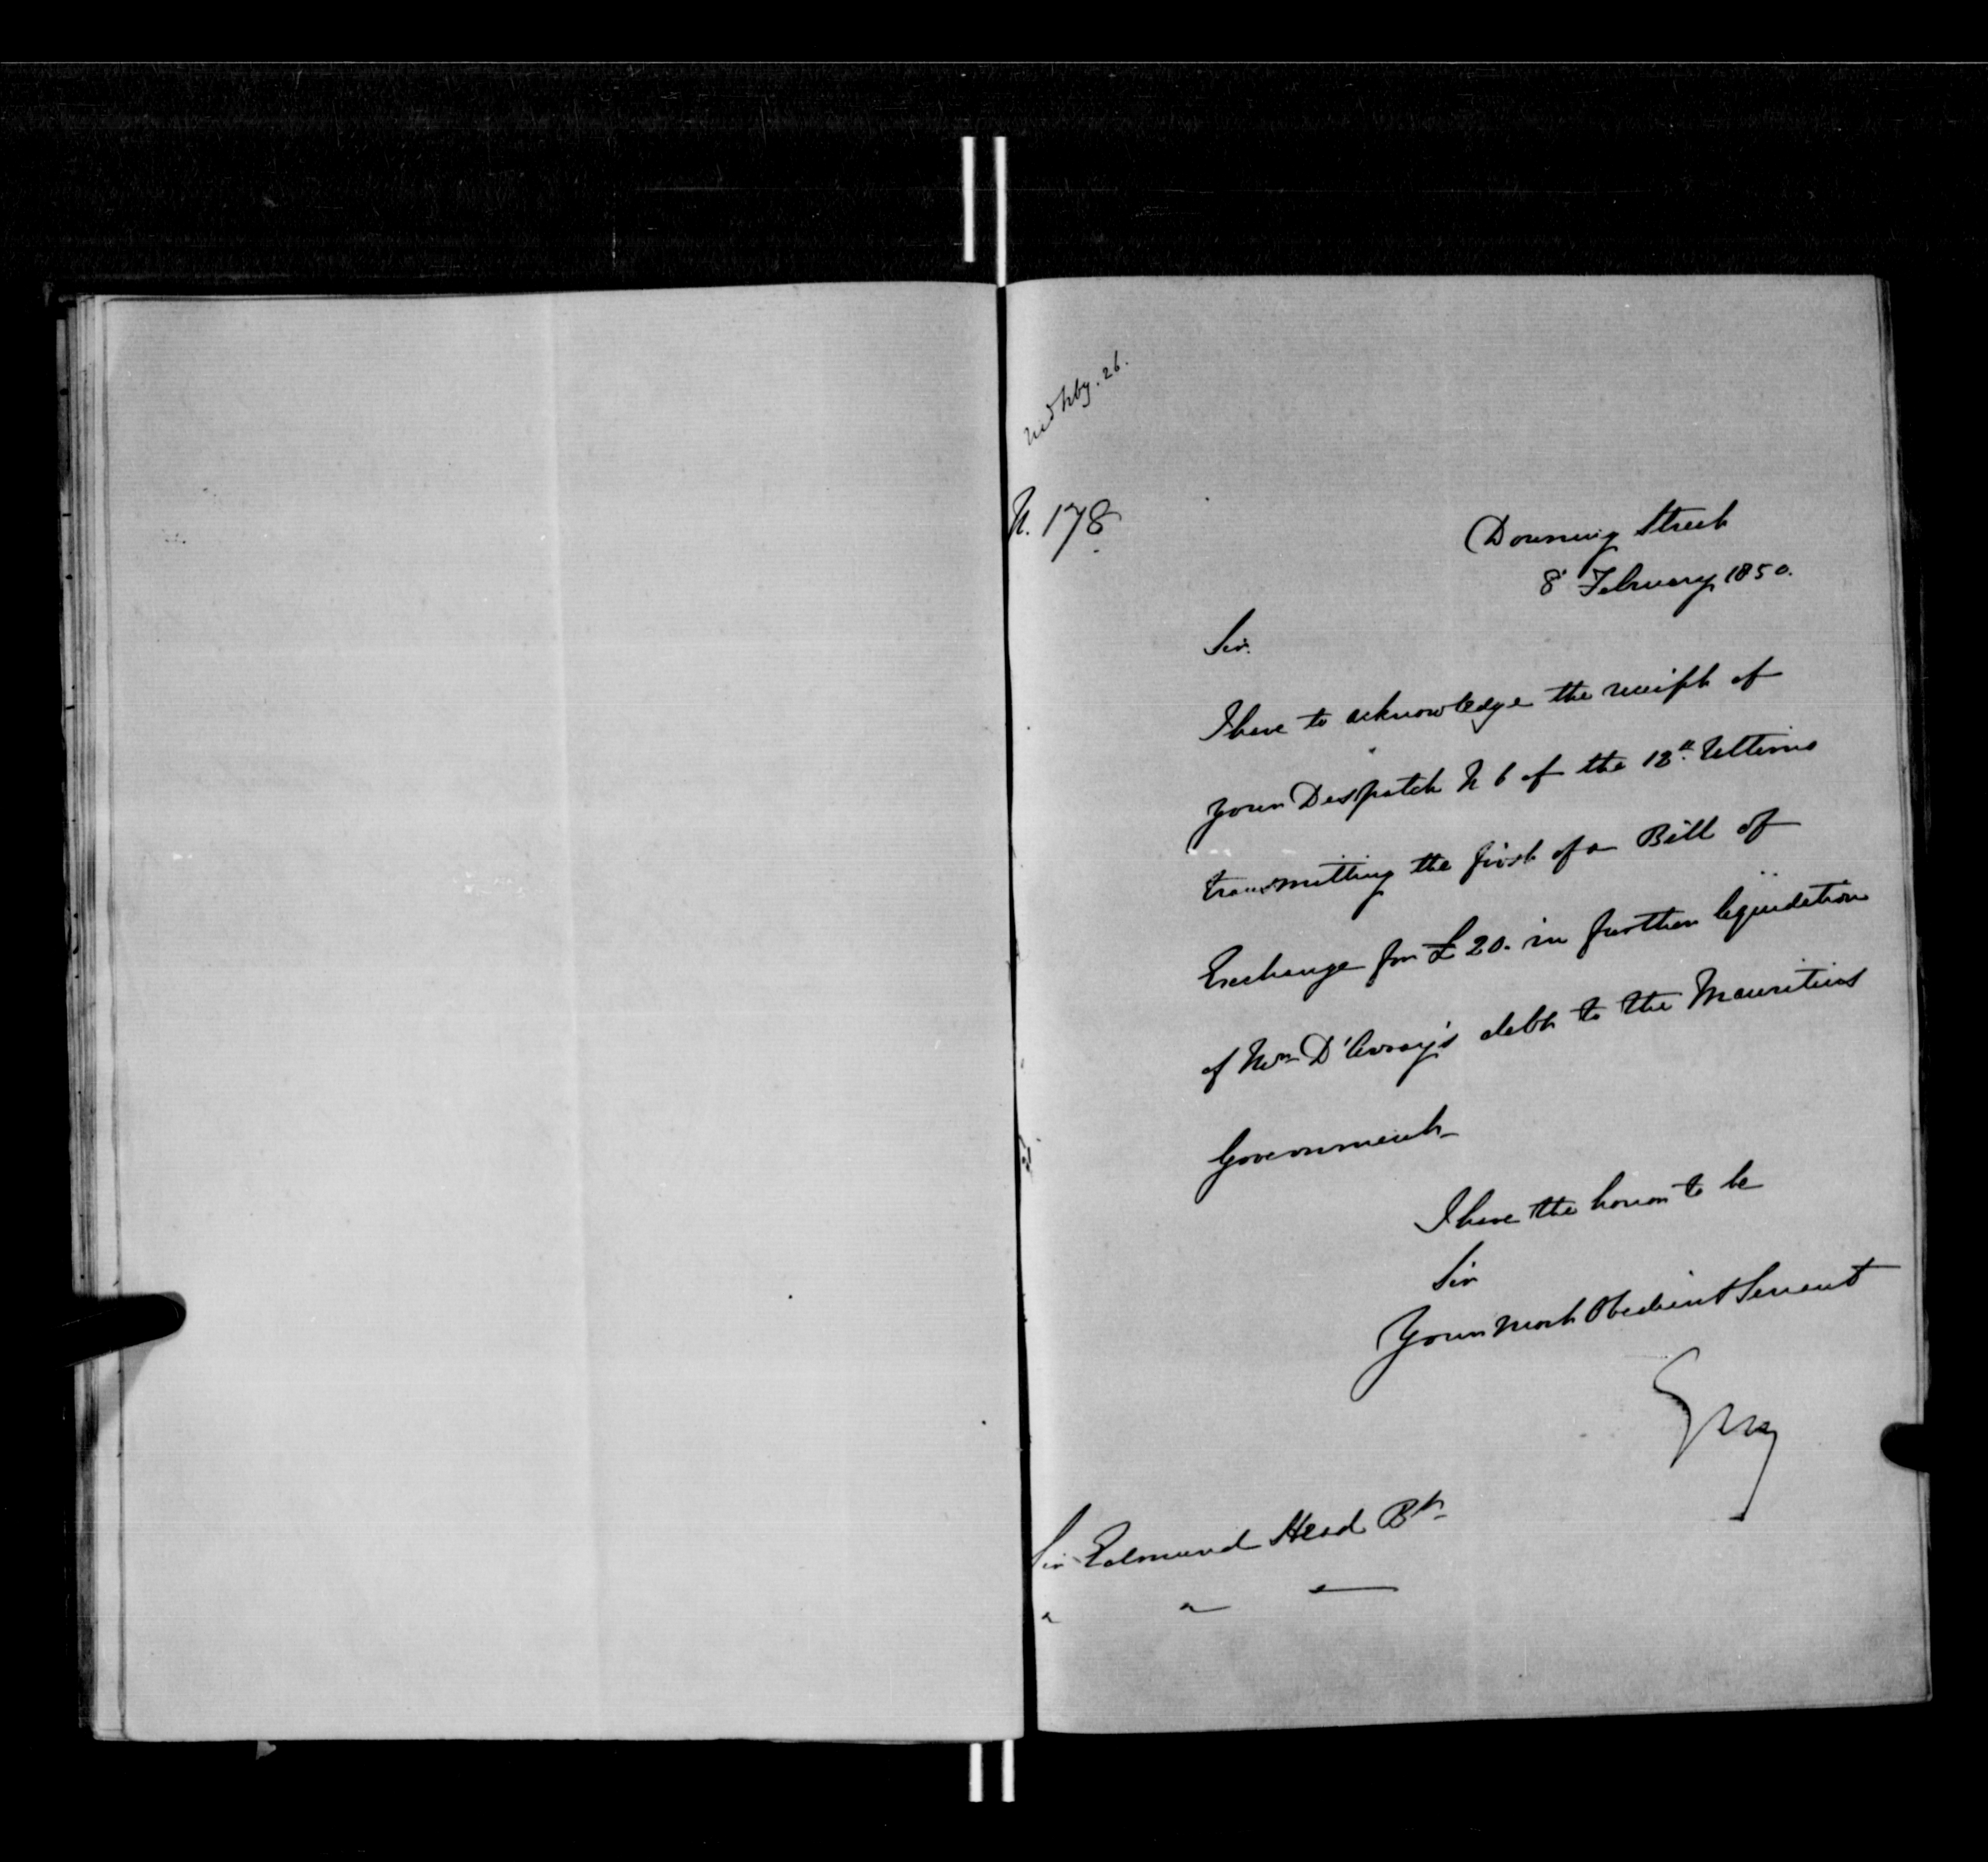 Recd Feby. 26.
N. 178
Downing Street
8 February 1850.
Sir.
I have to acknowledge the receipt of
your Despatch N 6 of the 18th. Ultimo
transmitting the first of a Bill of
Exchange for £20. in further liquidation
of D'Avray's debt to the Mauritius
Government
I have the honor to be
Sir
Your most Obedient Servant
Grey
Sir Edmund Head Bt